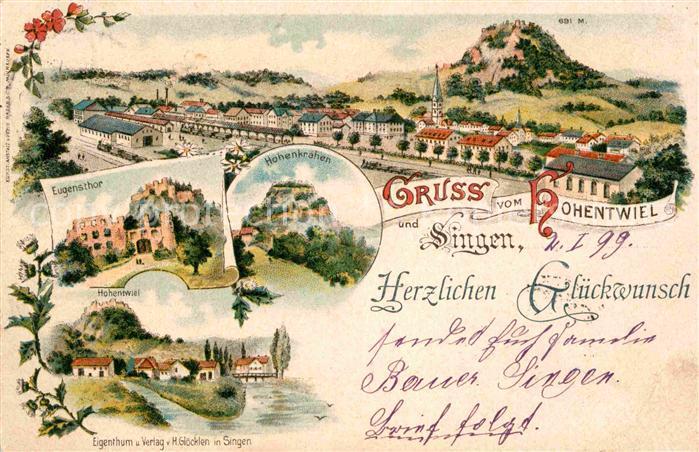 691 M.
Eugensthor
Hohenkrähen
GRUSS VOM HOHENTWIEL
und Singen, 2. I 99.
Hohentwiel
Herzlichen Glückwunsch
sendet Euch Familie
Bauer. Singen.
Brief folgt.
Eigenthum u Verlag v H. Glöcklen in Singen